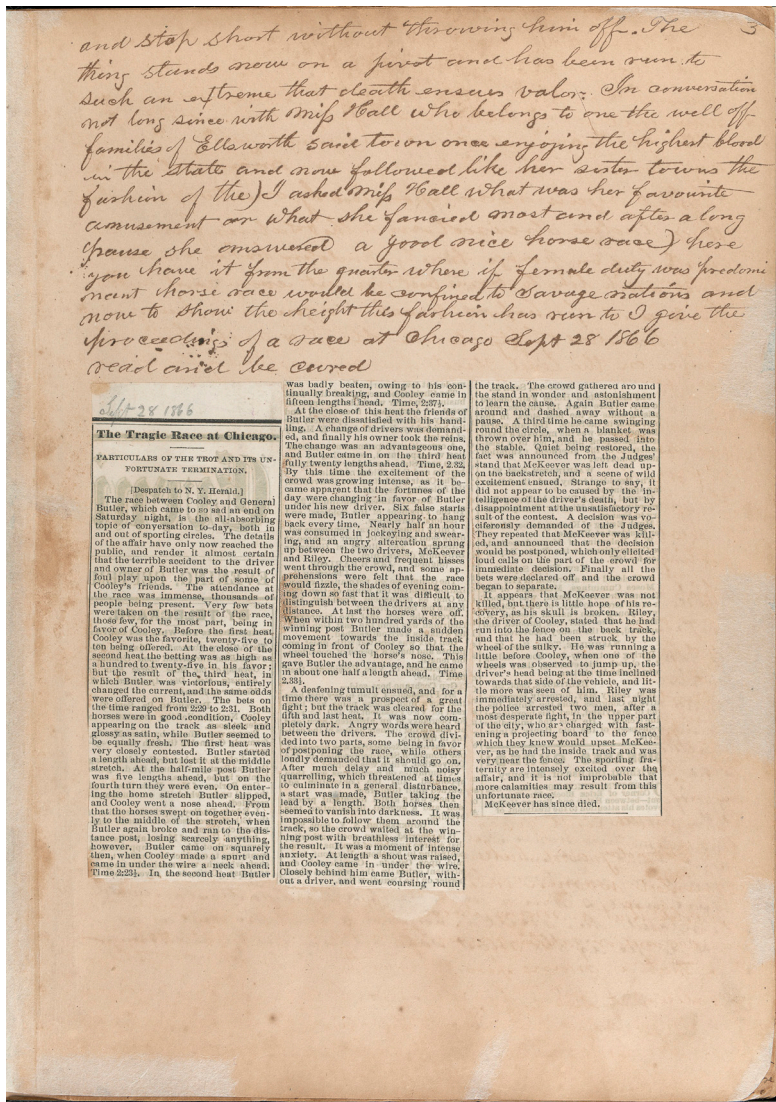 3
and stop short without throwing him off. The
thing stands now on a pivot and has been run to
such an extreme that death ensues valor. In conversation
not long since with Miss Hall who belongs to one the well off
families of Ellsworth said town once enjoying the highest blood
in the state and now followed like her sister towns the
fashion of the) I asked Miss Hall what was her favourite
amusement or what she fancied most and after a long
pause she answered a good nice horse race) here
you have it from the quarter where if female duty was predomi
nant horse race would be confined to savage nations and
now to show the height this fashion has run to I give the
proceedings of a race at Chicago Sept 28 1866
read and be cured
Sept 28 1866
The Tragic Race at Chicago.
PARTICULARS OF THE TROT AND ITS UN-
FORTUNATE TERMINATION.
[Despatch to N. Y. Herald.]
The race between Cooley and General
Butler, which came to so sad an end on
Saturday night, is the all-absorbing
topic of conversation to-day, both in
and out of sporting circles. The details
of the affair have only now reached the
public, and render it almost certain
that the terrible accident to the driver
and owner of Butler was the result of
foul play upon the part of some of
Cooley's friends. The attendance at
the race was immense, thousands of
people being present. Very few bets
were taken on the result of the race,
those few, for the most part, being in
favor of Cooley. Before the first heat
Cooley was the favorite, twenty-five to
ten being offered. At the close of the
second heat the betting was as high as
a hundred to twenty-five in his favor;
but the result of the third heat, in
which Butler was victorious, entirely
changed the current, and the same odds
were offered on Butler. The bets on
the time ranged from 2:29 to 2:31. Both
horses were in good condition, Cooley
appearing on the track as sleek and
glossy as satin, while Butler seemed to
be equally fresh. The first heat was
very closely contested. Butler started
a length ahead, but lost it at the middle
stretch. At the half-mile post Butler
was five lengths ahead, but on the
fourth turn they were even. On enter-
ing the home stretch Butler slipped,
and Cooley went a nose ahead. From
that the horses swept on together even-
ly to the middle of the stretch, when
Butler again broke and ran to the dis-
tance post, losing scarcely anything,
however. Butler came on squarely
then, when Cooley made a spurt and
came in under the wire a neck ahead.
Time 2:23½. In the second heat Butler
was badly beaten, owing to his con-
tinually breaking, and Cooley came in
fifteen lengths ahead. Time, 2:37½.
At the close of this heat the friends of
Butler were dissatisfied with his hand-
ling. A change of drivers was demand-
ed, and finally his owner took the reins.
The change was an advantageous one,
and Butler came in on the third heat
fully twenty lengths ahead. Time, 2.32.
By this time the excitement of the
crowd was growing intense, as it be-
came apparent that the fortunes of the
day were changing in favor of Butler
under his new driver. Six false starts
were made, Butler appearing to hang
back every time. Nearly half an hour
was consumed in jockeying and swear-
ing, and an angry altercation sprung
up between the two drivers, McKeever
and Riley. Cheers and frequent hisses
went through the crowd, and some ap-
prehensions were felt that the race
would fizzle, the shades of evening com-
ing down so fast that it was difficult to
distinguish between the drivers at any
distance. At last the horses were off.
When within two hundred yards of the
winning post Butler made a sudden
movement towards the inside track
coming in front of Cooley so that the
wheel touched the horse's nose. This
gave Butler the advantage, and he came
in about one half a length ahead. Time
2.33½.
A deafening tumult ensued, and for a
time there was a prospect of a great
fight; but the track was cleared for the
fifth and last heat. It was now com-
pletely dark. Angry words were heard
between the drivers. The crowd divi-
ded into two parts, some being in favor
of postponing the race, while others
loudly demanded that it should go on.
After much delay and much noisy
quarrelling, which threatened at times
to culminate in a general disturbance,
a start was made, Butler taking the
lead by a length. Both horses then
seemed to vanish into darkness. It was
impossible to follow them around the
track, so the crowd waited at the win-
ning post with breathless interest for
the result. It was a moment of intense
anxiety. At length a shout was raised,
and Cooley came in under the wire.
Closely behind him came Butler, with-
out a driver, and went coursing round
the track. The crowd gathered around
the stand in wonder and astonishment
to learn the cause. Again Butler came
around and dashed away without a
pause. A third time he came swinging
round the circle, when a blanket was
thrown over him, and he passed into
the stable. Quiet being restored, the
fact was announced from the Judges'
stand that McKeever was left dead up-
on the backstretch, and a scene of wild
excitement ensued. Strange to say, it
did not appear to be caused by the in-
telligence of the driver's death, but by
disappointment at the unsatisfactory re-
sult of the contest. A decision was vo-
ciferously demanded of the Judges.
They repeated that McKeever was kill-
ed, and announced that the decision
would be postponed, which only elicited
loud calls on the part of the crowd for
immediate decision. Finally all the
bets were declared off and the crowd
began to separate.
It appears that McKeever was not
killed, but there is little hope of his re-
covery, as his skull is broken. Riley,
the driver of Cooley, stated that he had
run into the fence on the back track,
and that he had been struck by the
wheel of the sulky. He was running a
little before Cooley, when one of the
wheels was observed to jump up, the
driver's head being at the time inclined
towards that side of the vehicle, and lit-
tle more was seen of him. Riley was
immediately arrested, and last night
the police arrested two men, after a
most desperate fight, in the upper part
of the city, who are charged with fast-
ening a projecting board to the fence
which they knew would upset McKee-
ver, as he had the inside track and was
very near the fence. The sporting fra-
ternity are intensely excited over the
affair, and it is not improbable that
more calamities may result from this
unfortunate race.
McKeever has since died.